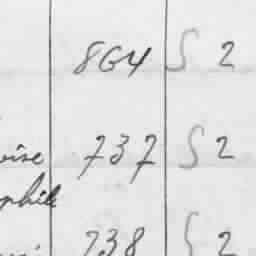 864 S 2
oise 737 S 2
phile
738 S 2